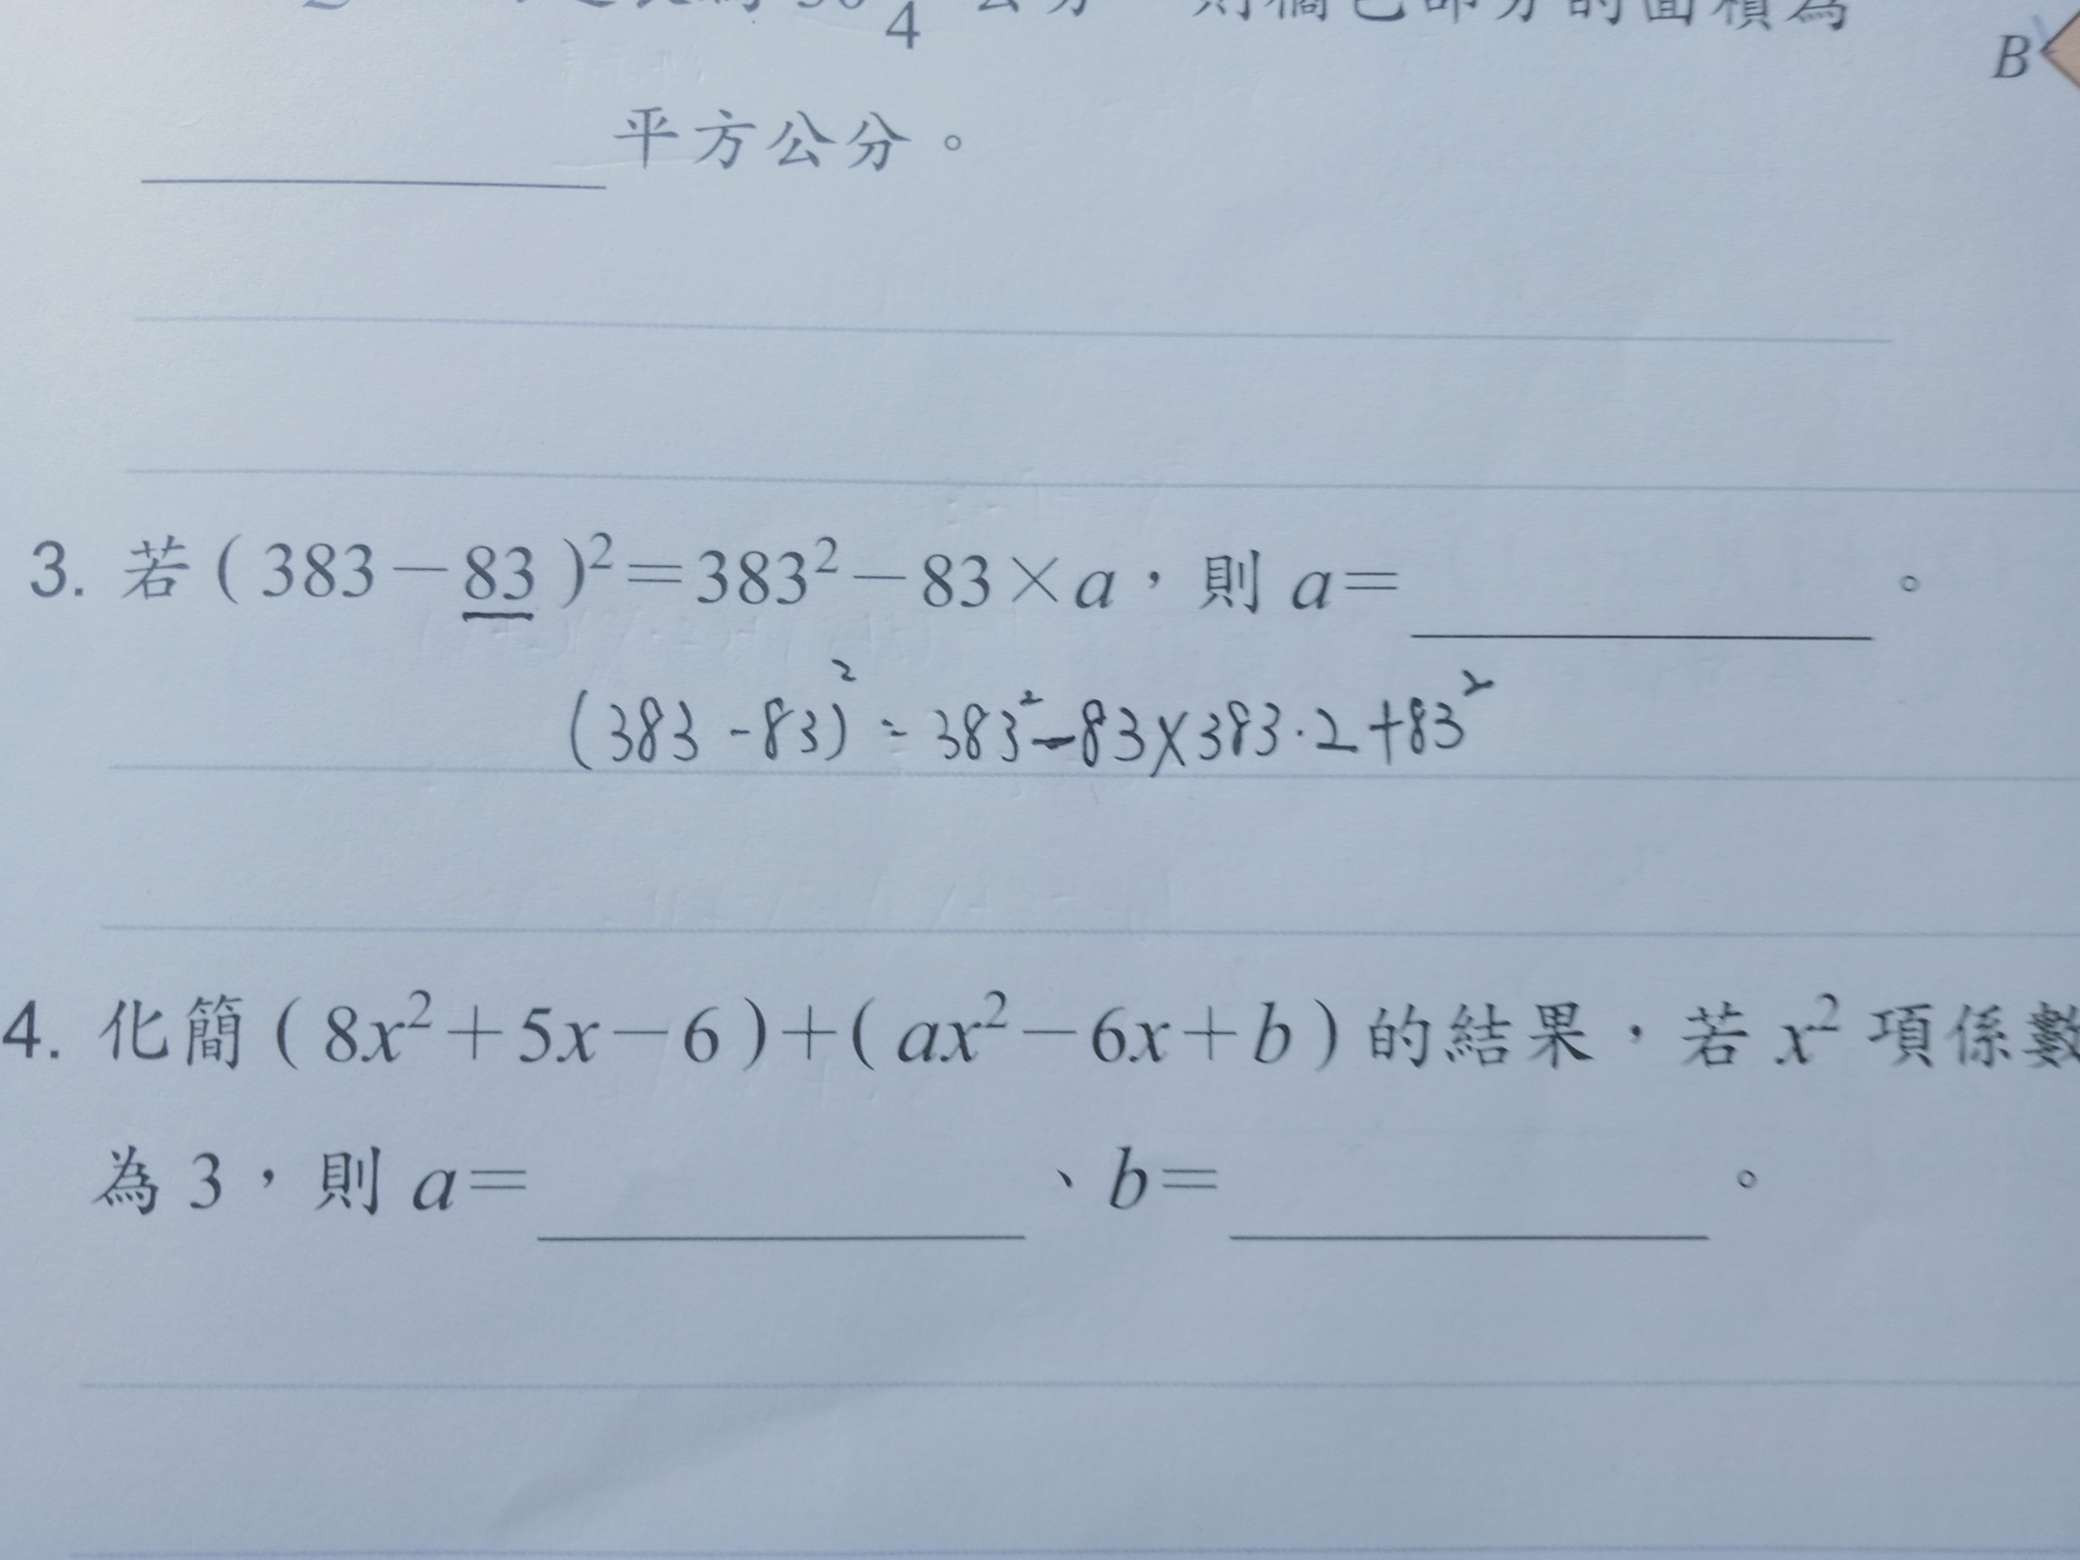 4 公分 則橘色部分的面積為
B
平方公分。
3. 若(383-83)²=383²-83×a,則 a= 。
(383-83)²=383²-83×383·2+83²
4. 化簡(8x²+5x-6)+(ax²-6x+b)的結果,若 x² 項係數
為 3,則 a= 、b= 。